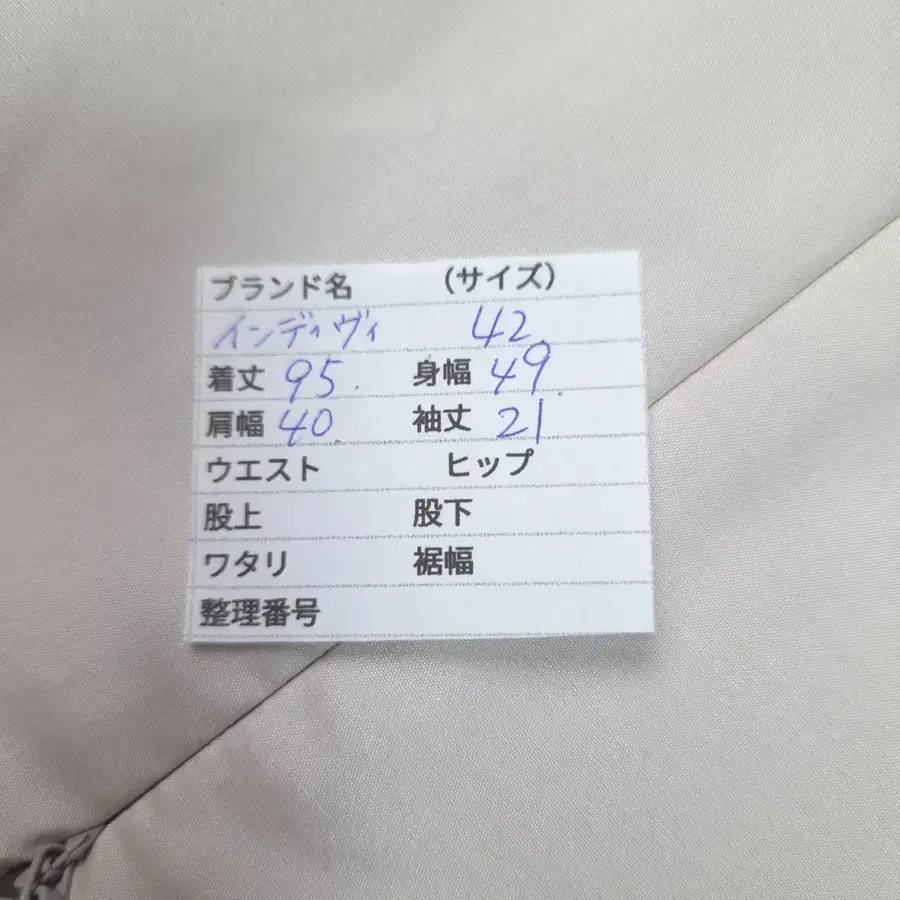 ブランド名 （サイズ）
インディヴィ 42
着丈 95. 身幅 49.
肩幅 40. 袖丈 21
ウエスト ヒップ
股上 股下
ワタリ 裾幅
整理番号